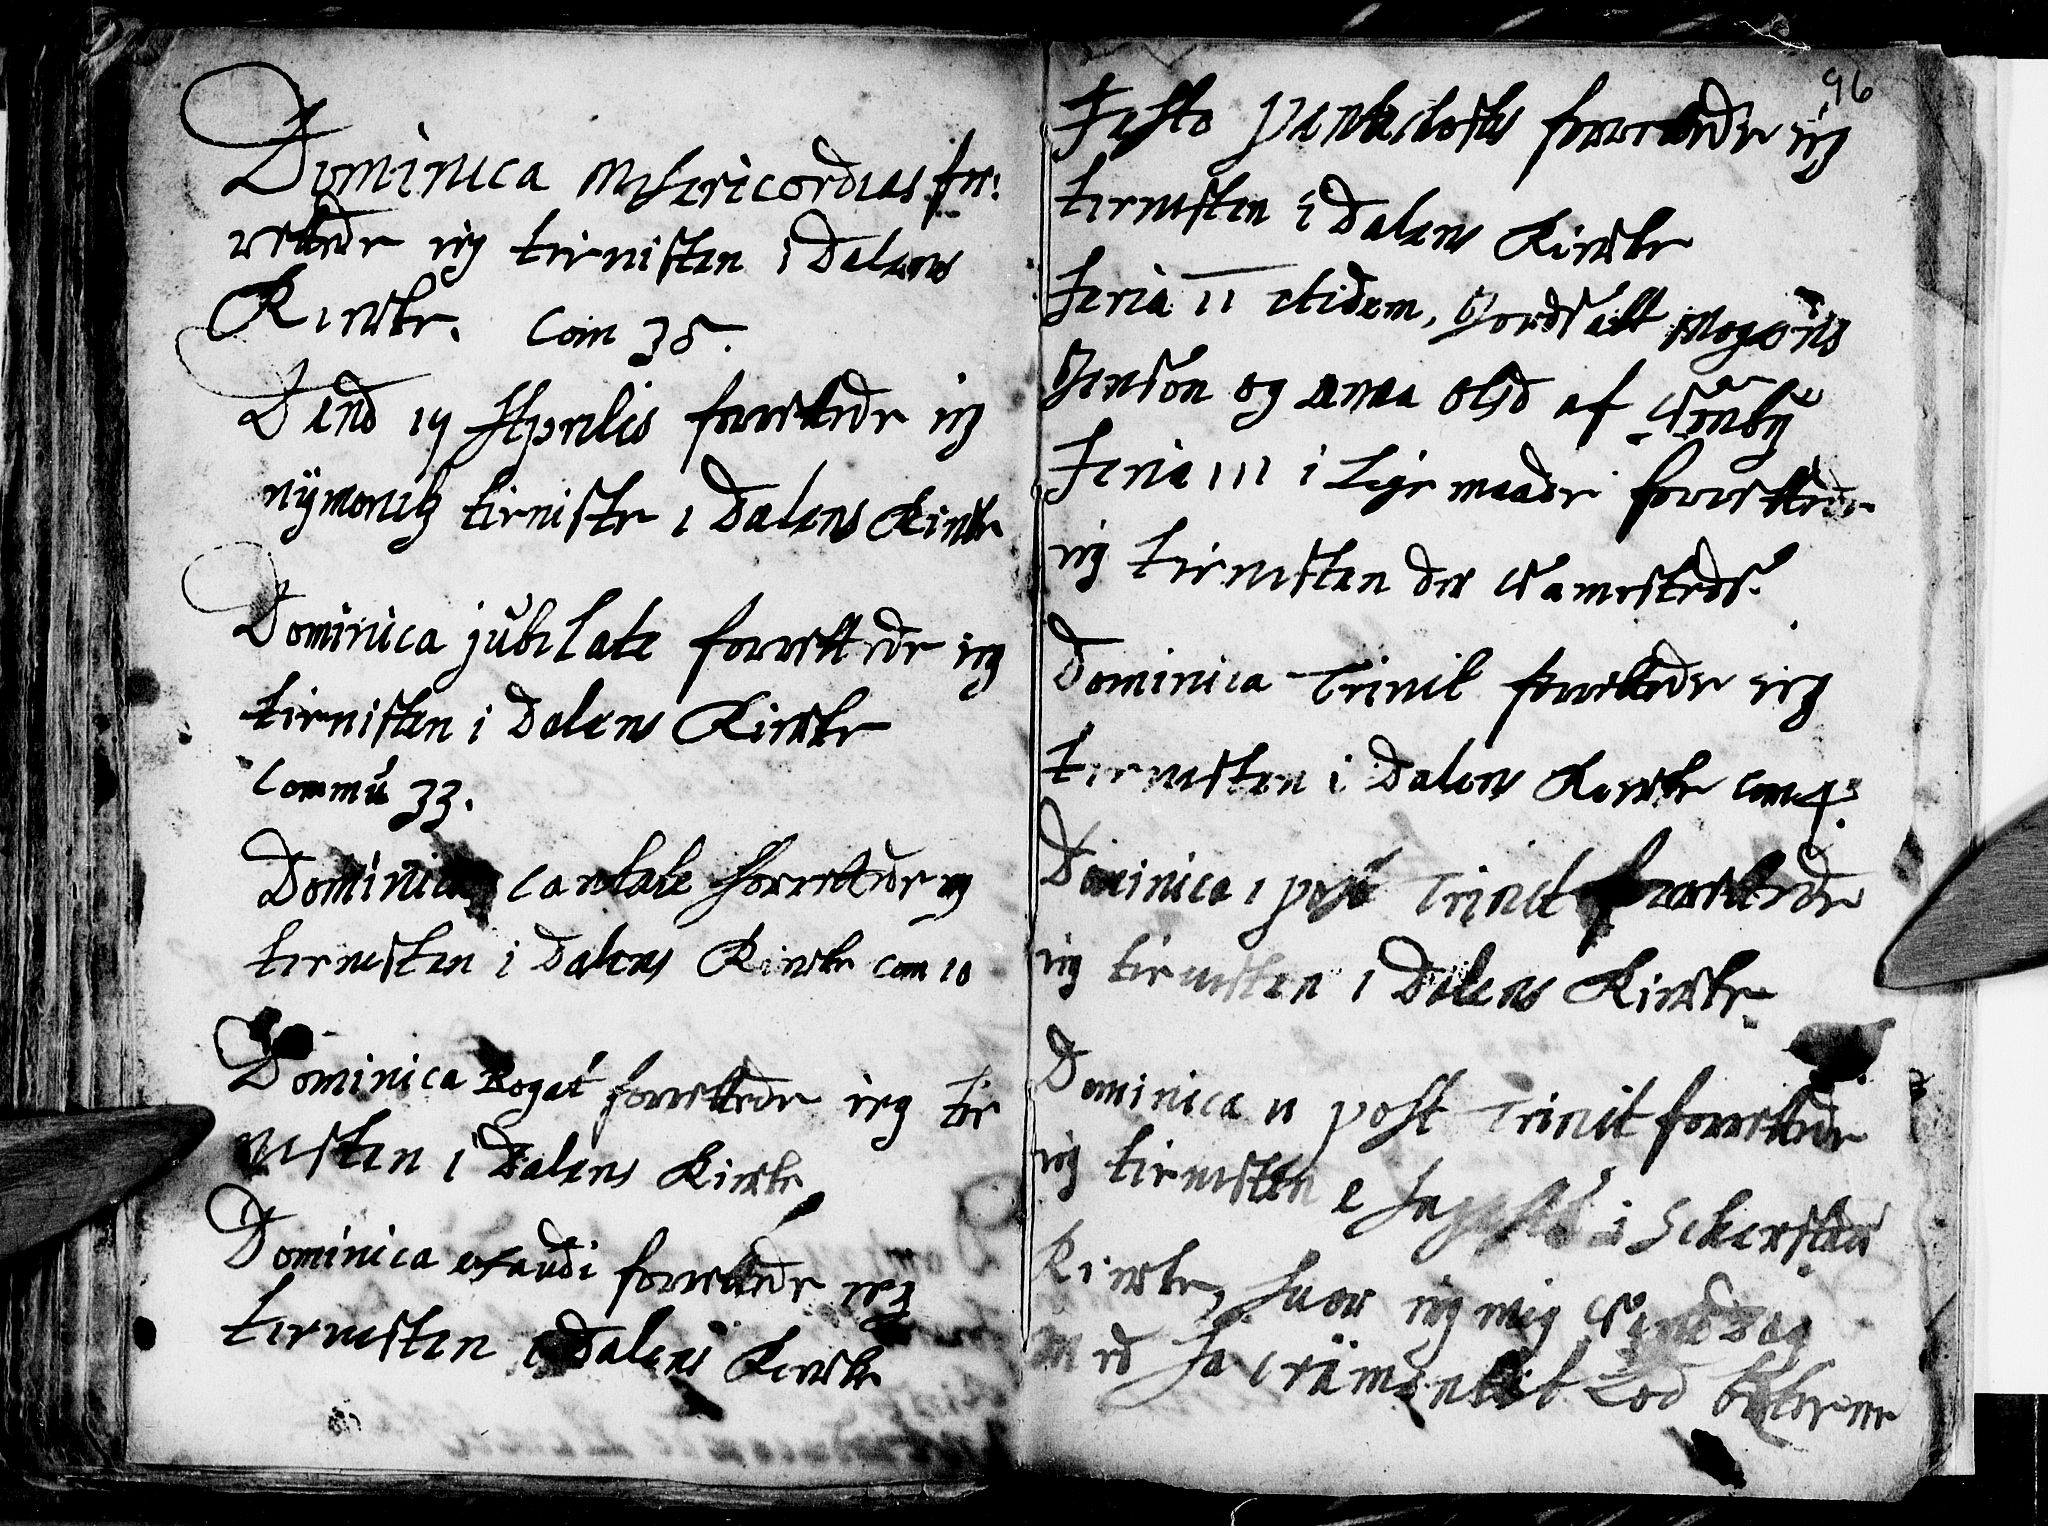 Dominica Misericordias for:
rettede ieg tienisten i Dalens
Kircke. Com 38.
Dend 19 Aprilis forrettede ieg
nÿmonitz tieniste i Dalens Kircke
Dominica jubilate forrettede ieg
tienisten i Dalens Kircke
Commu 33.
Dominica Cantate forrettede ieg
tienisten i Dalens Kircke com 10
Dominica Rogat forrettede ieg tie
nisten i Dalens Kircke
Dominica exaudi forrettede ieg
tienisten i Dalens Kircke
96
Festo pentecostes forrettede ieg
tienisten i Dalens Kircke
Feria II itidem, Mogens
Jenson og anna Olsd af
Feria III i lige maade forrettede
ieg tienisten der sammesteds.
Dominica Trinit forrettede ieg
tienisten i Dalens Kircke com
Dominica 1 post Trinit forrettede
ieg tienisten i Dalens Kircke
Dominica II post Trinit forrettede
ieg tienisten i
Kircke, huor ieg mig
med Sacramentet Lod